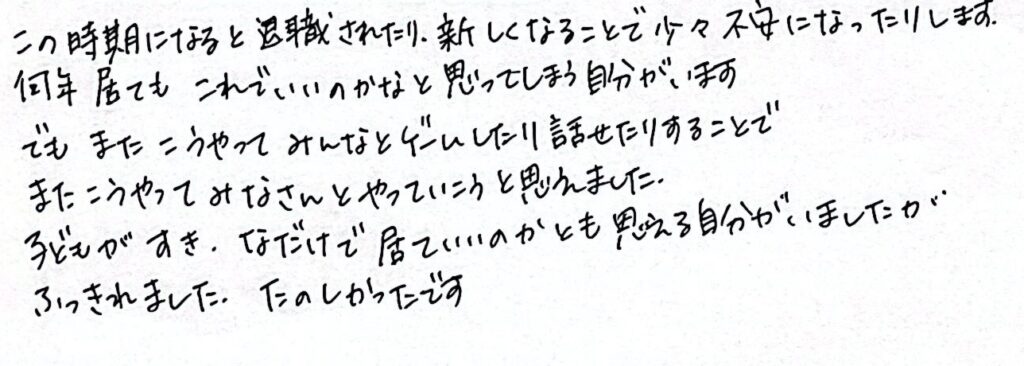 この時期になると退職されたり、新しくなることで少々不安になったりします。
何年居ても これでいいのかなと思ってしまう自分がいます
でも またこうやって みんなとゲームしたり話せたりすることで
またこうやってみなさんとやっていこうと思えました。
子どもがすき、なだけで居ていいのかとも思える自分がいましたが
ふっきれました。たのしかったです